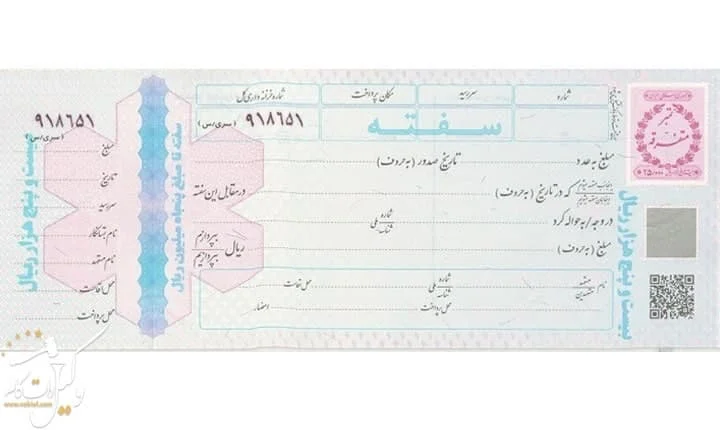 شماره
سررسید
مکان پرداخت
شماره خزانه داری کل
۹۱۸۶۵۱ (سری/س)
سفته
مبلغ به عدد
تاریخ صدور (به حروف)
که در تاریخ (به حروف)
در مقابل این سفته
در وجه / به حواله کرد
شماره ملی
شناسه
مبلغ (به حروف)
ریال
بپردازم
بپردازیم
نام
متعهد
متعهدین
شماره ملی
شناسه
محل اقامت
محل پرداخت
امضاء
سفته تا مبلغ پنجاه میلیون ریال
بیست و پنج هزار ریال
تمبر
متفرقه
بیست و پنج هزار ریال
۹۱۸۶۵۱
(سری/س)
مبلغ
تاریخ
سررسید
نام بستانکار
نام متعهد
محل اقامت
محل پرداخت
www.vakiel.com